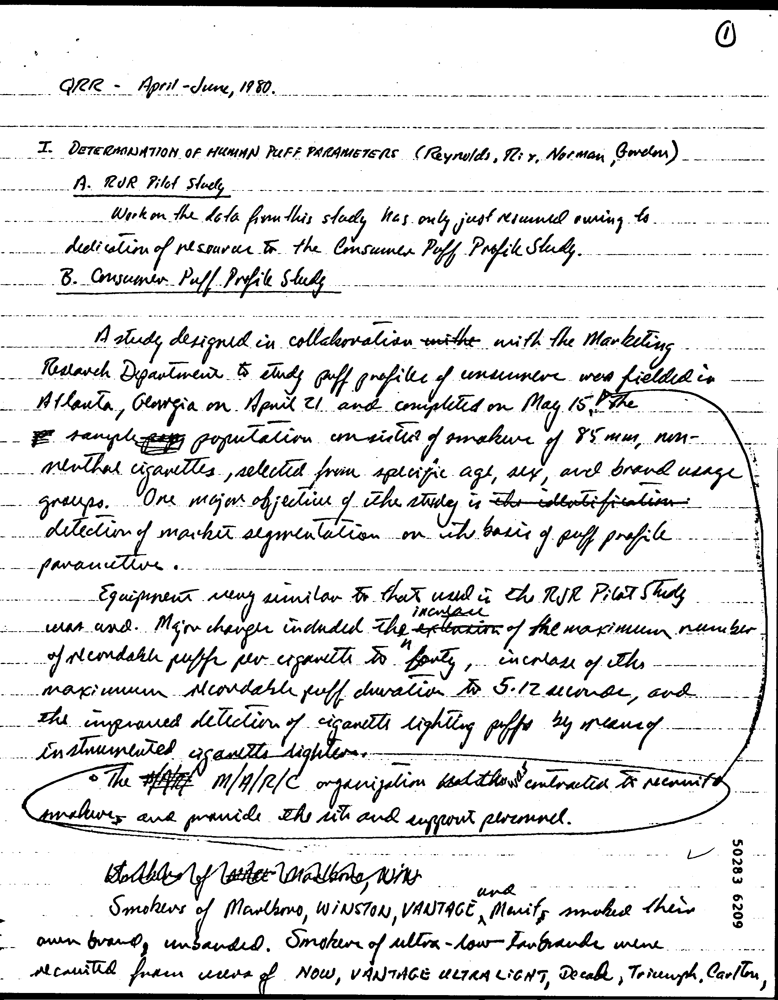 1
QRR - April-June, 1980.
I. DETERMINATION OF HUMAN PUFF PARAMETERS (Reynolds, Rix, Norman, Gordon)
A. RJR Pilot Study
Work on the data from this study has only just resumed owing to
dedication of resources to the Consumer Puff Profile Study.
B. Consumer Puff Profile Study
A study designed in collaboration with the Marketing
Research Department to study puff profiles of consumers was fielded in
Atlanta, Georgia on April 21 and completed on May 15. The
sample population consisted of smokers of 85 mm, non-
menthol cigarettes, selected from specific age, sex, and brand usage
groups. One major objective of the study is the identification
detection of market segmentation on the basis of puff profile
parameters.
Equipment very similar to that used in the RJR Pilot Study
increase
was used. Major changes included the extension of the maximum number
of recordable puffs per cigarette to forty, increase of the
maximum recordable puff duration to 5.12 seconds, and
the improved detection of cigarette lighting puffs by means of
instrumented cigarette lighters.
The M/A/R/C organization contracted to recruit
smokers and provide the site and support personnel.
and
Smokers of Marlboro, WINSTON, VANTAGE, Merit, smoked their
own brand, unbanded. Smokers of ultra-low tar brands were
recruited from users of NOW, VANTAGE ULTRA LIGHT, Decade, Triumph, Carlton,
50283 6209